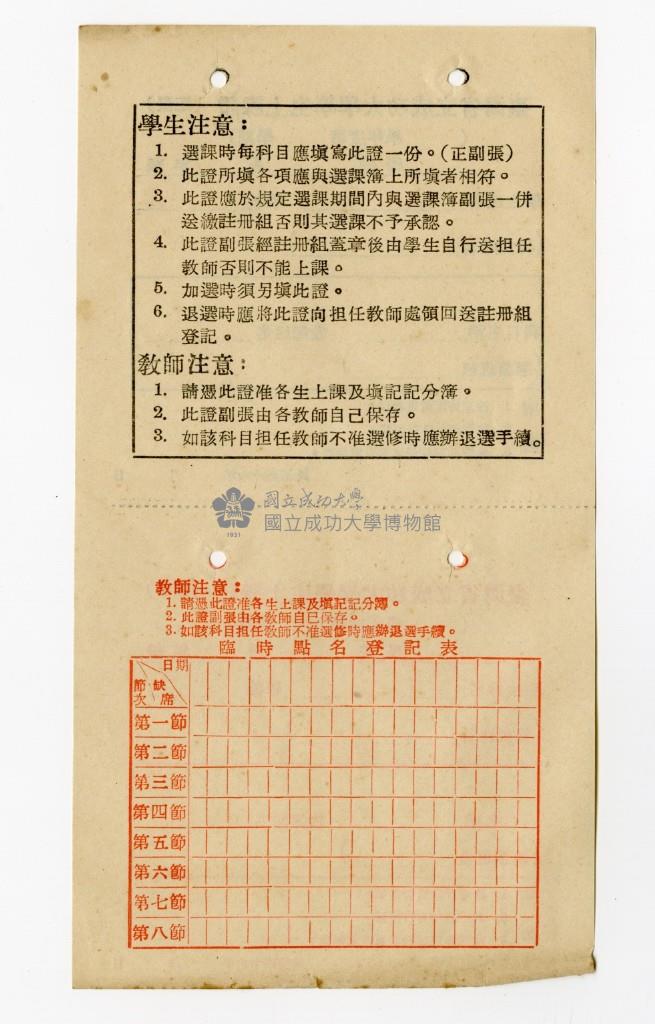 學生注意：
1. 選課時每科目應塡寫此證一份。(正副張)
2. 此證所塡各項應與選課簿上所塡者相符。
3. 此證應於規定選課期間內與選課簿副張一併
送繳註册組否則其選課不予承認。
4. 此證副張經註册組蓋章後由學生自行送担任
教師否則不能上課。
5. 加選時須另塡此證。
6. 退選時應將此證向担任教師處領回送註册組
登記。
教師注意：
1. 請憑此證准各生上課及塡記記分簿。
2. 此證副張由各教師自己保存。
3. 如該科目担任教師不准選修時應辦退選手續。
國立成功大學
1931
國立成功大學博物館
教師注意：
1. 請憑此證准各生上課及塡記記分簿。
2. 此證副張由各教師自己保存。
3. 如該科目担任教師不准選修時應辦退選手續。
臨時點名登記表
日期
缺席
節次
第一節
第二節
第三節
第四節
第五節
第六節
第七節
第八節